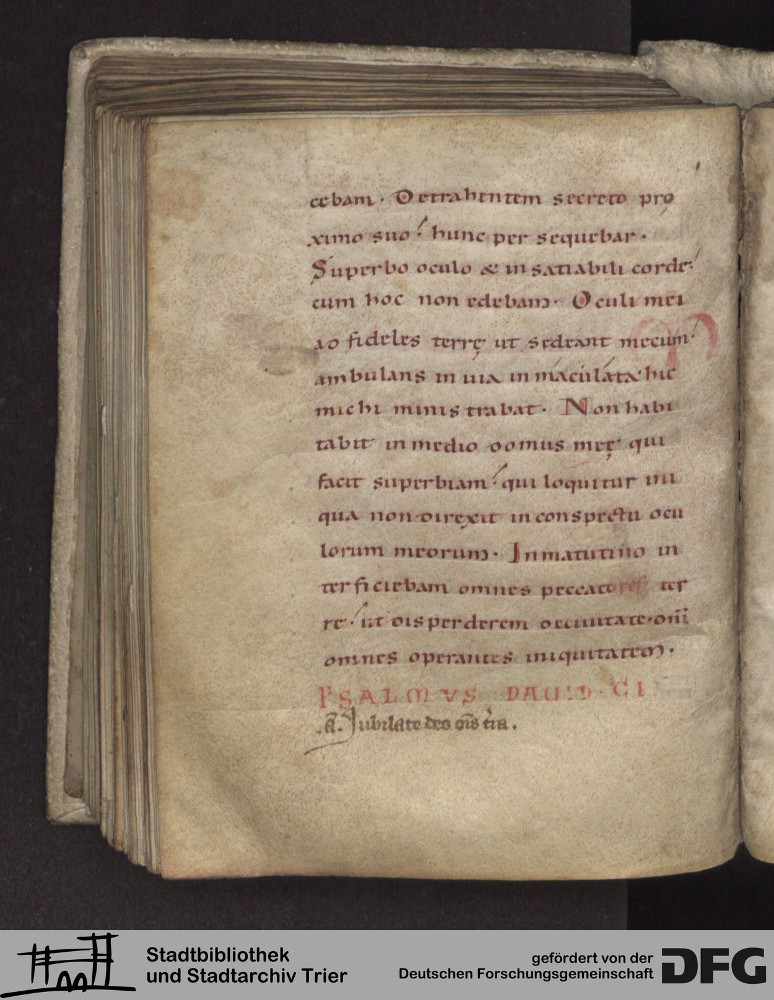 cebam. Detrahentem secreto pro
ximo suo: hunc per sequebar.
Superbo oculo & in satiabili corde:
cum hoc non edebam. Oculi mei
ad fideles terrę ut sedeant mecum:
ambulans in uia in maculata hic
michi minis trabat. Non habi
tabit in medio domus meę qui
facit superbiam: qui loquitur ini
qua non direxit in conspectu ocu
lorum meorum. In matutino in
ter ficiebam omnes peccatores ter
rę: ut disperderem de ciuitate dn̄i
omnes operantes iniquitatem.
PSALMVS DAUID. CI
.a̅. Jubilate deo om̄s t̄ra.
Stadtbibliothek
und Stadtarchiv Trier
gefördert von der
Deutschen Forschungsgemeinschaft
DFG